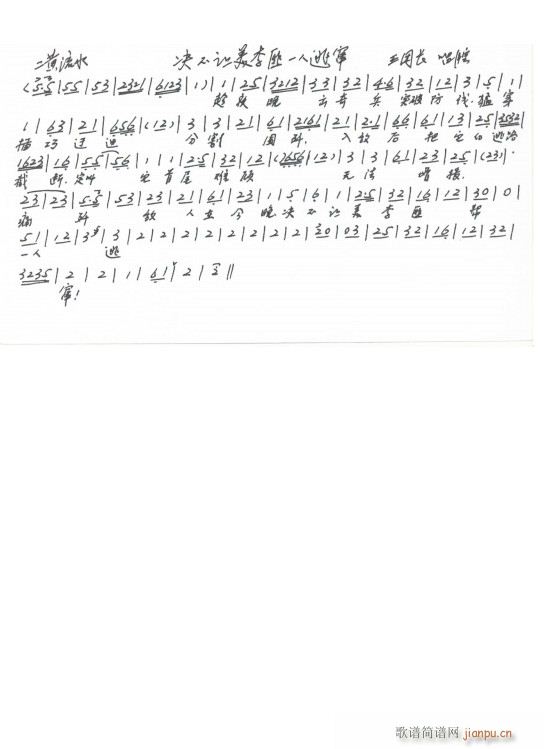 二黄流水 决不让美李匪一人逃窜 王团长 唱腔
(5·5|55|53|2321|6123|1)|1|25|3212|33|32|4·6|32|12|3|5|1|
趁夜晚 出奇兵 突破防线·猛穿
1|63|21|656|(12)|3|3|21|61|2161|21|2·1|66|61|13|25|3532|
插巧迂迴 分割围歼 入敌后把它的逃路
1623|16|55|56|1|1|25|32|12|(2656|12)|3|3|61|23|25|(23)|
截断. 定叫它首尾难顾 无法增援.
23|23|5·5|53|23|21|61|23|1|5|6|1|25|32|16|12|30|0|
痛歼敌人在今晚决不让美李匪帮
51|12|3|3|2|2|2|2|2|2|2|2|30|03|25|32|16|12|32|
一人逃
3235|2|2|1|61|2|2||
窜!
歌谱简谱网
jianpu.cn